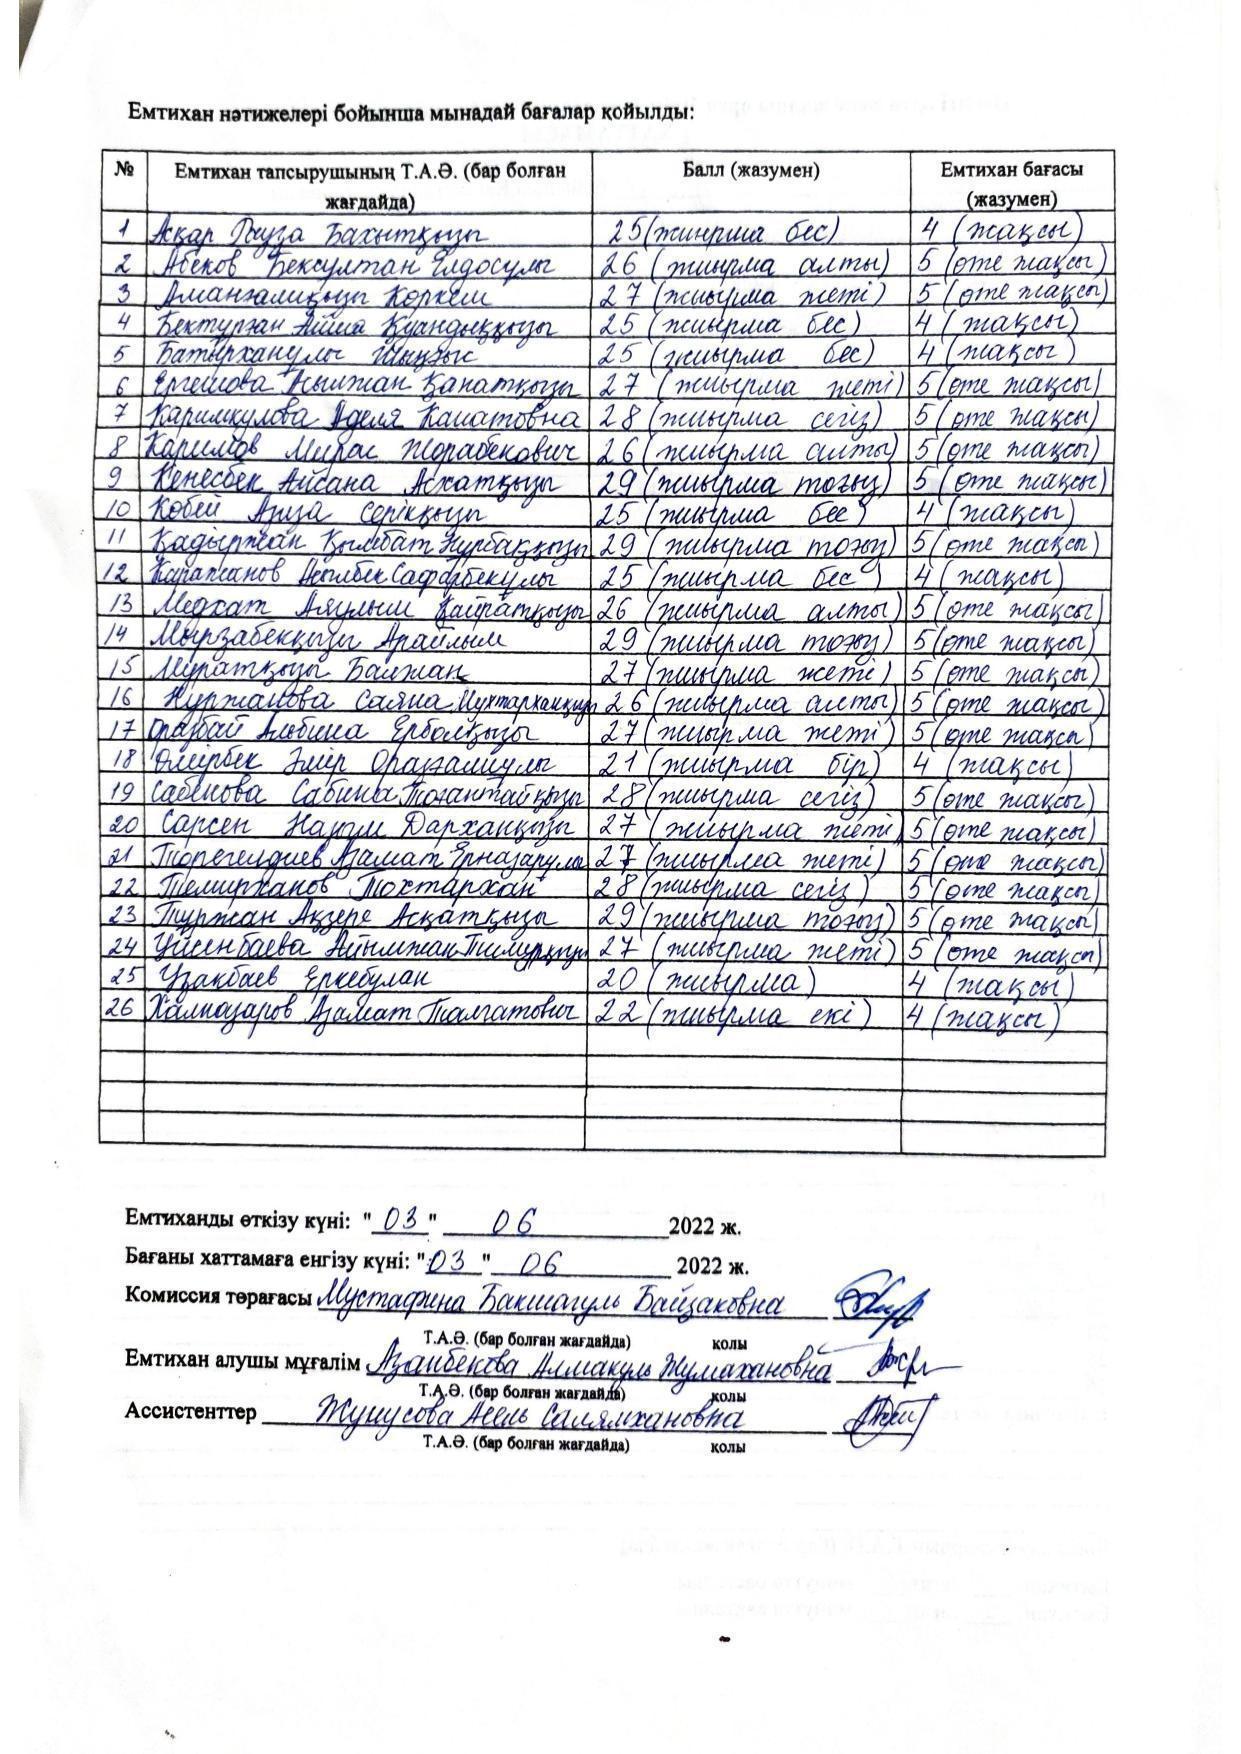 Емтихан нәтижелері бойынша мынадай бағалар қойылды:
№ Емтихан тапсырушының Т.А.Ә. (бар болған жағдайда) Балл (жазумен) Емтихан бағасы (жазумен)
1 Асқар Рауза Бахытқызы 25 (жиырма бес) 4 (жақсы)
2 Абеков Бексултан Елдосулы 26 (жиырма алты) 5 (өте жақсы)
3 Аманғалиқызы Көркем 27 (жиырма жеті) 5 (өте жақсы)
4 Бектурған Айша Қуандыққызы 25 (жиырма бес) 4 (жақсы)
5 Батырханулы Шыңғыс 25 (жиырма бес) 4 (жақсы)
6 Ергешова Қанатқызы 27 (жиырма жеті) 5 (өте жақсы)
7 Каримкулова Аделя Канатовна 28 (жиырма сегіз) 5 (өте жақсы)
8 Каримов Мирас Жорабекович 26 (жиырма алты) 5 (өте жақсы)
9 Кенесбек Айсана Асхатқызы 29 (жиырма тоғыз) 5 (өте жақсы)
10 Көбей Азиза Серікқызы 25 (жиырма бес) 4 (жақсы)
11 Қадыржан Қымбат Нурбаққызы 29 (жиырма тоғыз) 5 (өте жақсы)
12 Асылбек Сафарбекулы 25 (жиырма бес) 4 (жақсы)
13 Медхат Аяулым Қайратқызы 26 (жиырма алты) 5 (өте жақсы)
14 Мырзабекқызы Арайлым 29 (жиырма тоғыз) 5 (өте жақсы)
15 Муратқызы Балжан 27 (жиырма жеті) 5 (өте жақсы)
16 Нуржанова Саяна Мухтарханқызы 26 (жиырма алты) 5 (өте жақсы)
17 Оразбай Альбина Ерболқызы 27 (жиырма жеті) 5 (өте жақсы)
18 Өмірбек Әмір Оразғалиулы 21 (жиырма бір) 4 (жақсы)
19 Сабенова Сабина Тоғантайқызы 28 (жиырма сегіз) 5 (өте жақсы)
20 Сарсен Назым Дарханқызы 27 (жиырма жеті) 5 (өте жақсы)
21 Төрегелдиев Азамат Ерназарулы 27 (жиырма жеті) 5 (өте жақсы)
22 Темирханов Тохтархан 28 (жиырма сегіз) 5 (өте жақсы)
23 Туржан Ақзере Асқатқызы 29 (жиырма тоғыз) 5 (өте жақсы)
24 Үйсенбаева Айымжан Тимурқызы 27 (жиырма жеті) 5 (өте жақсы)
25 Узакбаев Еркебулан 20 (жиырма) 4 (жақсы)
26 Халназаров Азамат Талгатович 22 (жиырма екі) 4 (жақсы)
Емтиханды өткізу күні: "03" 06 2022 ж.
Бағаны хаттамаға енгізу күні: "03" 06 2022 ж.
Комиссия төрағасы Мустафина Бакшагуль Байзаковна
Т.А.Ә. (бар болған жағдайда) колы
Емтихан алушы мұғалім Азанбекова Алмакуль Жумахановна
Т.А.Ә. (бар болған жағдайда) колы
Ассистенттер Жунусова Асель Салямхановна
Т.А.Ә. (бар болған жағдайда) колы